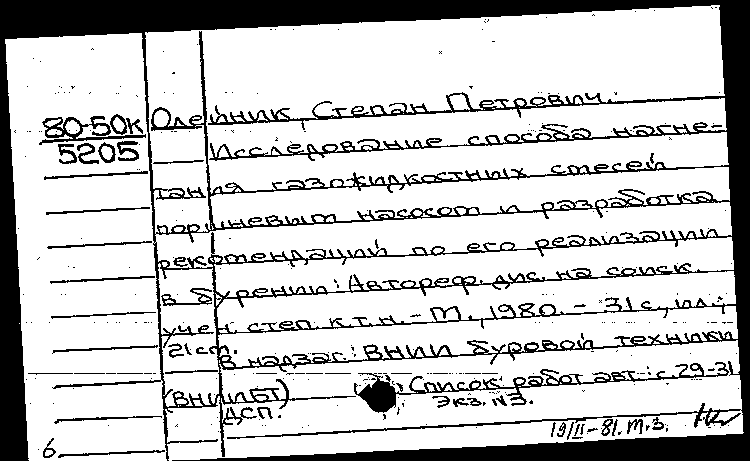 80-50к
5205
Олейник, Степан Петрович.
Исследование способа нагне-
тания газожидкостных смесей
поршневым насосом и разработка
рекомендаций по его реализации
в бурении: Автореф. дис. на соиск.
учен. степ. к.т.н. - М., 1980. - 31 с., ил.;
21 см.
В надзаг.: ВНИИ буровой техники
(ВНИИБТ). Список работ авт.: с. 29-31
ДСП. Экз. №3.
19/II-81. М.З.
6.